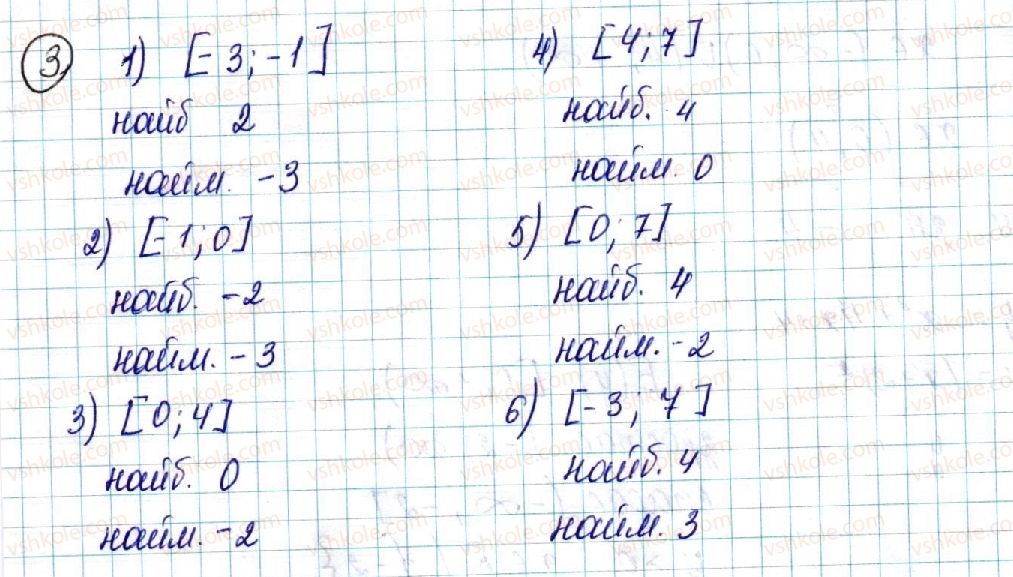 3
1) [-3; -1]
найб 2
найм. -3
2) [-1; 0]
найб. -2
найм. -3
3) [0; 4]
найб. 0
найм. -2
4) [4; 7]
найб. 4
найм. 0
5) [0; 7]
найб. 4
найм. -2
6) [-3; 7]
найб. 4
найм. 3
vshkole.com